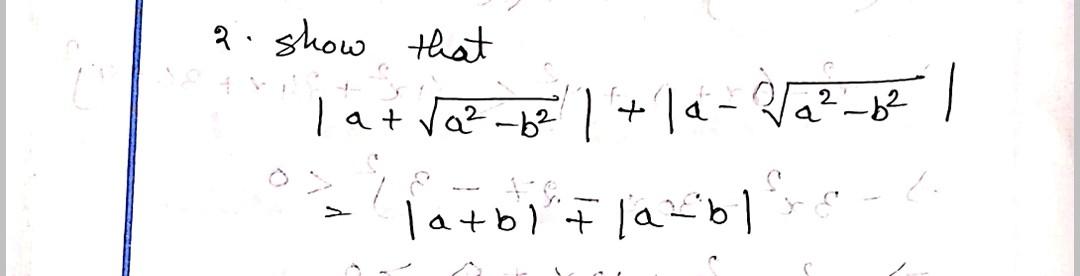 2. show that
| a + √(a² - b²) | + | a - √(a² - b²) |
= |a+b| + |a-b|